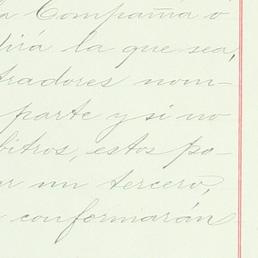 a Compañia o
dirá la que sea,
tradores nom-
parte y si no
bitros, estos po-
ar un tercero,
conformarán